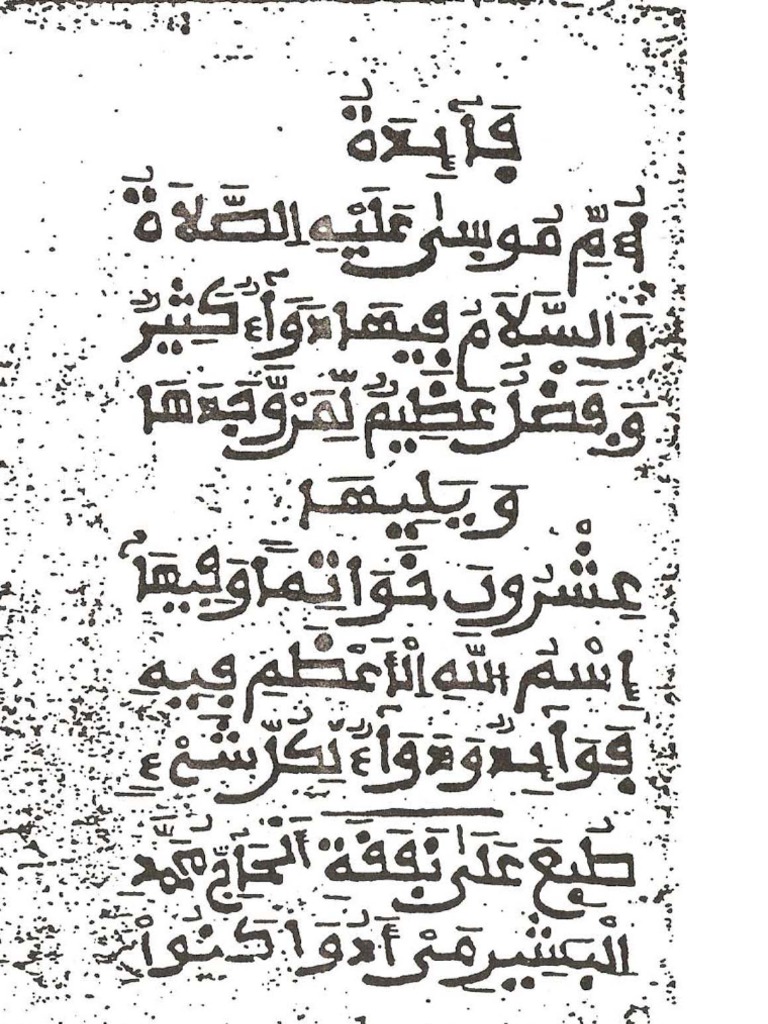 فَآئِدَةٌ
أُمِّ مُوسَىٰ عَلَيْهِ الصَّلَاةُ
وَالسَّلَامُ فِيهَا دَوَآءٌ كَثِيرٌ
وَفَضْلٌ عَظِيمٌ لِّمَنْ وَّجَدَهَا
وَيَلِيهَا
عِشْرُونَ خَوَاتِمًا وَفِيهَا
إِسْمُ اللَّهِ الْأَعْظَمِ فِيهِ
فَوَآئِدٌ وَدَوَآءٌ لِّكُلِّ شَيْءٍ
طُبِعَ عَلَىٰ نَفَقَةِ الْحَآجِّ مُحَمَّدِ
الْبَشِيرِ مَىْ أَدُوَا كَنُواْ